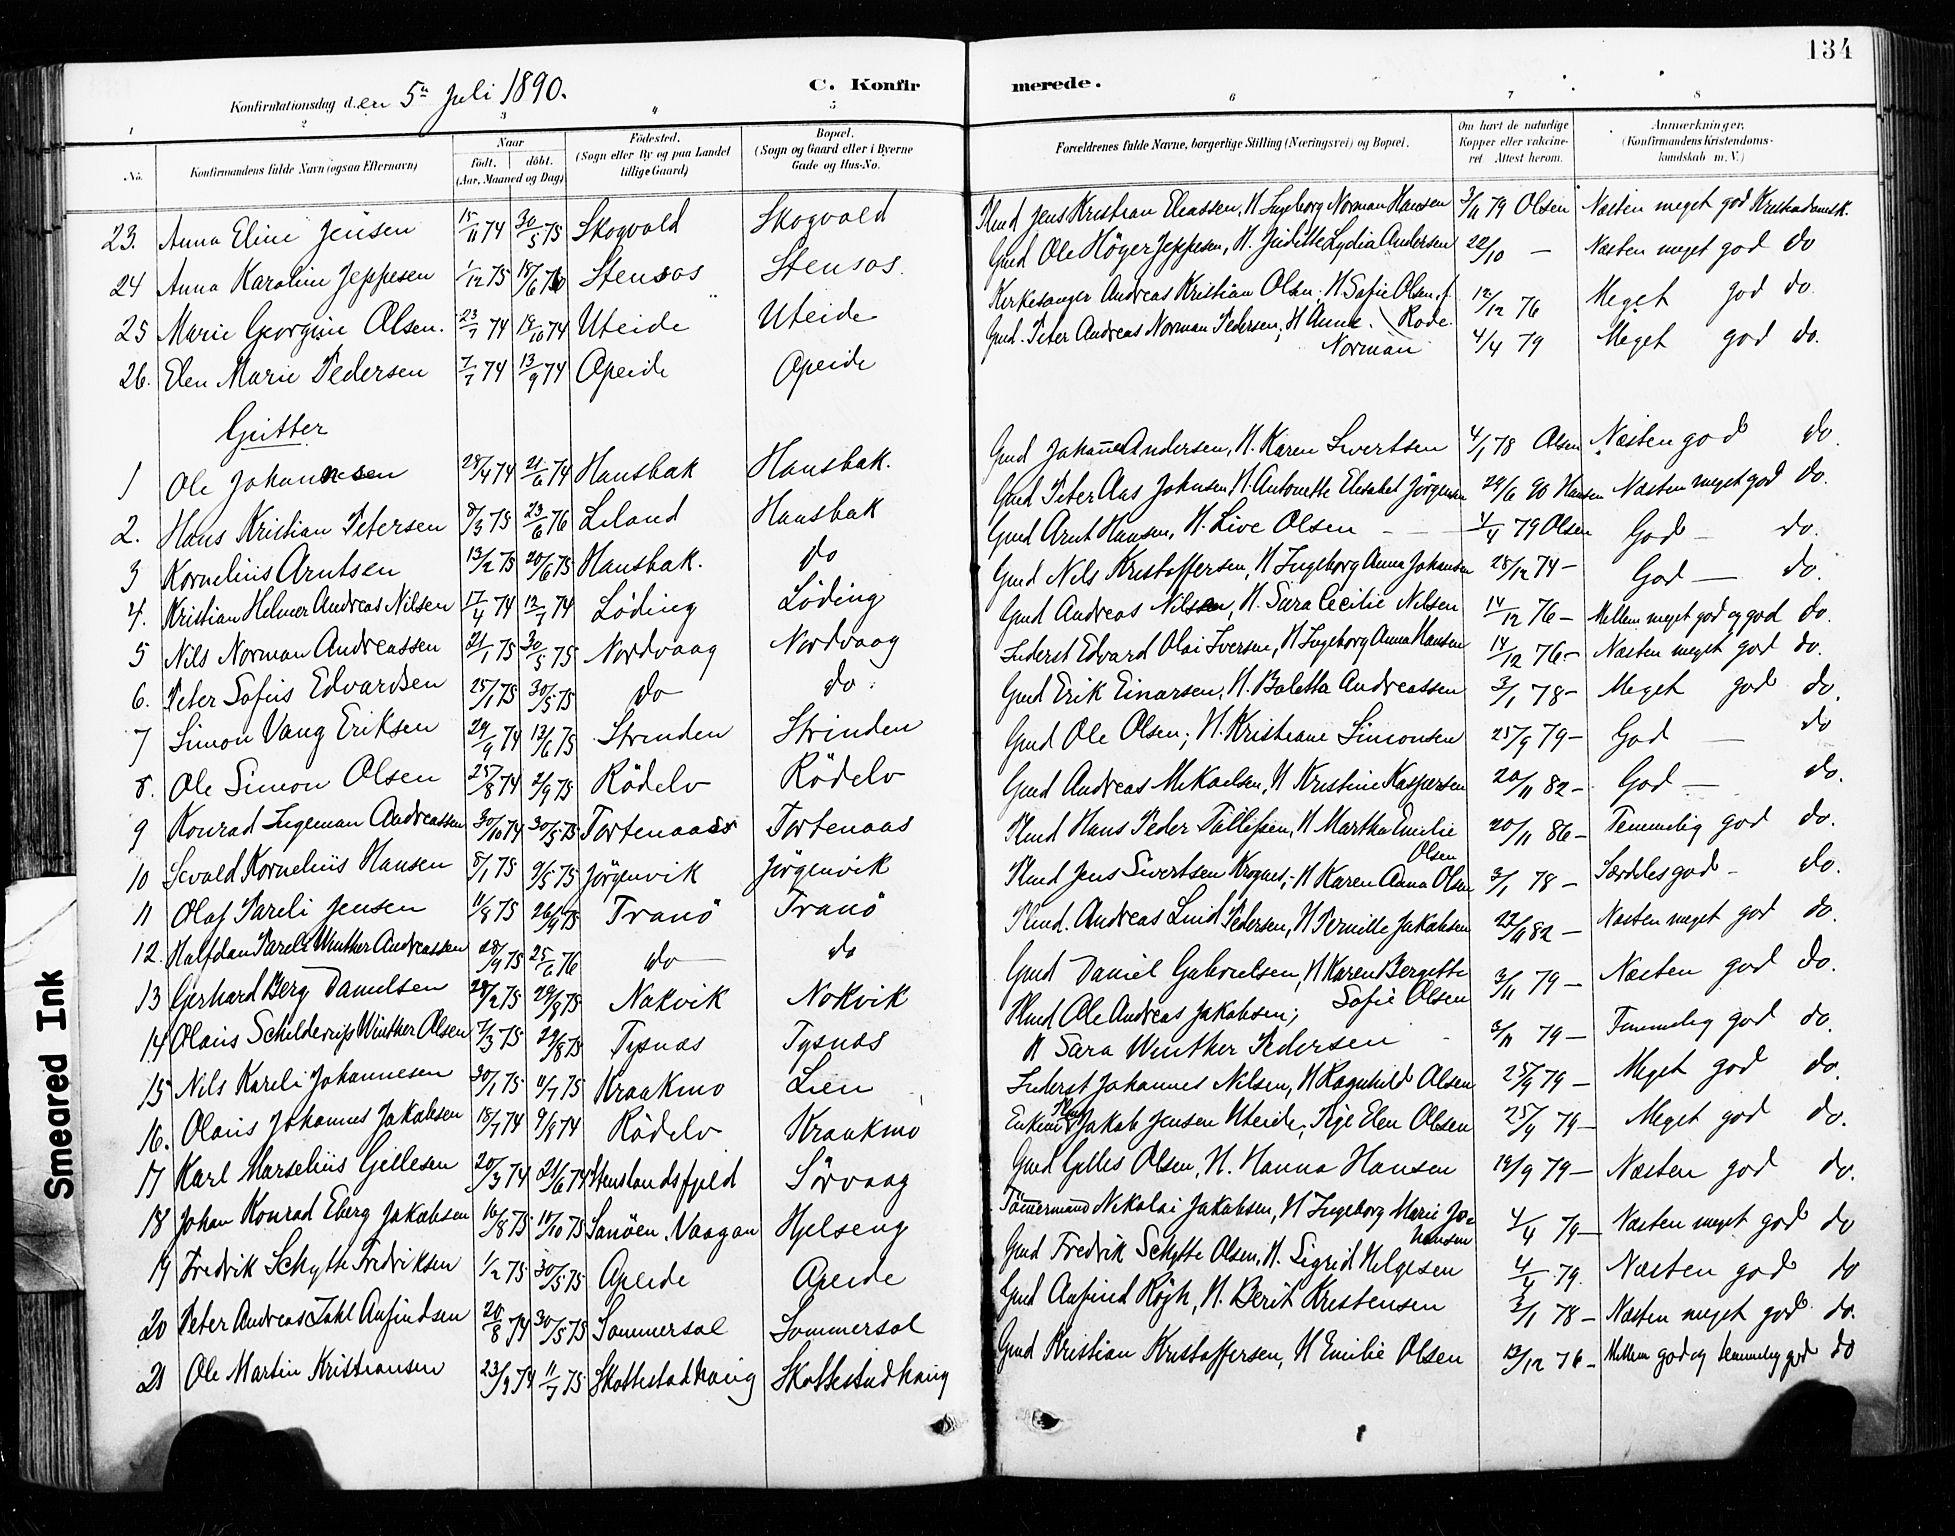 134
Konfirmationsdag den 5te Juli 1890.
C. Konfir merede.
1 2 3 4 5 6 7 8
No.
Konfirmandens fulde Navn (ogsaa Efternavn)
Naar
født. døbt.
(Aar, Maaned og Dag)
Fødested.
(Sogn eller By og paa Landet
tillige Gaard)
Bopæl.
(Sogn og Gaard eller i Byerne
Gade og Hus-No.
Forældrenes fulde Navne, borgerlige Stilling (Næringsvei) og Bopæl.
Om havt de naturlige
Kopper eller vakcine-
ret Attest herom.
Anmærkninger.
(Konfirmandens Kristendoms-
kundskab m. V.)
23. Anna Eline Jensen 15/11 74 30/5 75 Skogvold Skogvold Hmd Jens Kristian Eleassen, H. Ingeborg Norman Hansen 3/11 79 Olsen Næsten meget god Kristendomsk.
24 Anna Karoline Jeppesen 1/12 75 18/6 76 Stensos Stensos. Gmd Ole Höger Jeppesen, H. Juditte Lydia Andersen 22/10 — Næsten meget god do
25 Marie Georgine Olsen. 23/7 74 18/10 74 Uteide Uteide Kirkesanger Andreas Kristian Olsen; H Sofie Olsen f. Rode. 12/12 76 Meget god do.
26. Elen Marie Pedersen 7/7 74 13/9 74 Apeide Apeide Gmd. Peter Andreas Norman Pedersen; H Anne Norman 4/4 79 Meget god do.
Gutter
1 Ole Johannesen 28/4 74 21/6 74 Hansbak Hansbak. Gmd Johan Andersen, H. Karen Sivertsen 4/1 78 Olsen Næsten god do
2. Hans Kristian Petersen 8/3 75 23/6 76 Leland Hansbak Gmd Peter Aas Johnsen, H. Antonette Elisabet Jörgensen 29/6 90 Hansen Næsten meget god do.
3 Kornelius Arntsen 13/2 75 20/6 75 Hansbak. do Gmd Arnt Hansen, H. Live Olsen 4/4 79 Olsen God — do.
4. Kristian Helmer Andreas Nilsen 17/4 74 12/7 74 Löding Löding Gmd Nils Kristoffersen, H Ingeborg Anna Johansen 28/12 74 — God — do.
5 Nils Norman Andreassen 21/1 75 30/5 75 Nordvaag Nordvaag Gmd Andreas Nilsen, H. Sara Cecilie Nilsen 14/12 76 — Mellem meget god og god do.
6. Peter Sofus Edvardsen 25/1 75 30/5 75 do do. Inderst Edvard Olai Iversen, H Ingeborg Anna Hansen 14/12 76 — Næsten meget god do.
7 Simon Vang Eriksen 29/9 74 13/6 75 Strinden Strinden Gmd Erik Einarsen, H. Boletta Andreassen 3/1 78 — Meget god do.
8. Ole Simon Olsen 25/8 74 2/9 75 Rödelv Rödelv Gmd Ole Olsen; H. Kristiane Simonsen 25/9 79 — God — do
9 Konrad Ingeman Andreassen 30/10 74 30/5 75 Tortenaas Tortenaas Gmd Andreas Mikaelsen, H Kristine Kaspersen 20/11 82 — God — do.
10 Sevald Kornelius Hansen 8/1 75 9/5 75 Jörgenvik Jörgenvik Hmd Hans Peder Tollefsen, H Martha Emilie Olsen 20/11 86 — Temmelig god do.
11 Olaf Pareli Jensen 11/8 75 26/9 75 Tranö Tranö Hmd Jens Sivertsen Krognes, H Karen Anna Olsen 3/1 78 — Særdeles god — do.
12. Halfdan Pareli Winther Andreassen 28/9 75 25/6 76 do do Hmd. Andreas Lind Pedersen, H Pernille Jakobsen 22/11 82 — Næsten meget god do.
13 Gerhard Berg Danielsen 28/2 75 29/8 75 Nakvik Nokvik Gmd Daniel Gabrielsen, H Karen Bergette Sofie Olsen 3/11 79 — Næsten god do.
14 Olaus Schilderup Winther Olsen 7/3 75 29/8 75 Tysnas Tysnas Hmd Ole Andreas Jakobsen; H Sara Winther Pedersen 3/11 79 — Temmelig god do.
15 Nils Kareli Johannesen 30/1 75 11/7 75 Kraakmo Lien Inderst Johannes Nilsen, H Ragnhild Olsen 25/9 79 — Meget god do.
16. Olaus Johannes Jakobsen 18/7 74 9/9 74 Rödelv Kraakmo Enkem Jakob Jensen Uteide, Pige Elen Olsen 25/9 79 — Meget god do.
17 Karl Marselius Gellesen 20/3 74 21/6 74 Stenslandsfjeld Sörvaag Gmd Gelles Olsen, H. Hanna Hansen 19/9 79 — Næsten god do.
18 Johan Konrad Eberg Jakobsen 16/8 75 10/10 75 Sanöen. Vaagan Hjelseng Tömmermand Nikolai Jakobsen, H Ingeborg Marie Johansen 4/4 79 — Næsten meget god do
19 Fredrik Schytte Fredriksen 1/2 75 30/5 75 Apeide Apeide Gmd Fredrik Schytte Olsen, H. Sigrid Helgesen 4/4 79. Næsten god do
20 Peter Andreas Dahl Anfindsen 20/8 74 30/5 75 Sommersel Sommersel Gmd Anfind Rögh, H. Berit Kristensen 3/1 78 — Næsten meget god do.
21 Ole Martin Kristiansen 23/9 74 11/7 75 Skottestadhaug Skottestadhaug Gmd Kristian Kristoffersen, H Emilie Olsen 13/12 76 — Mellem god og temmelig god do
Smeared Ink